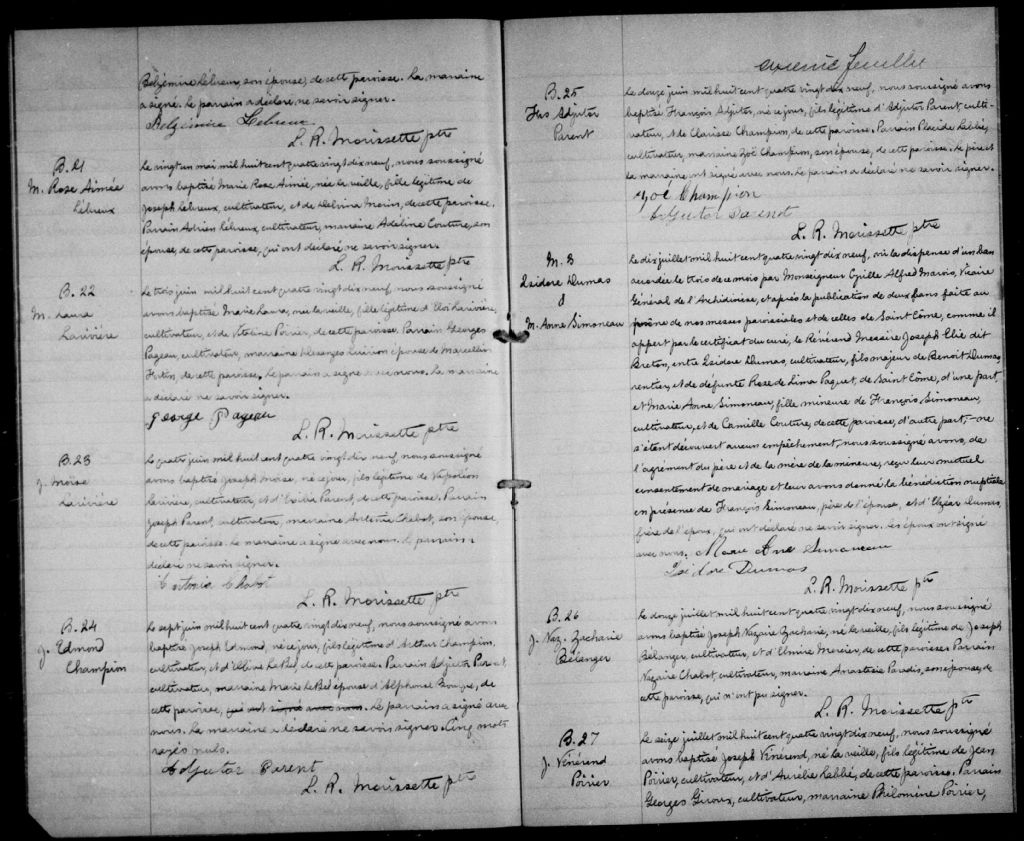 Belzémire Lebreux, son épouse, de cette paroisse. La marraine
a signé. Le parrain a déclaré ne savoir signer.
Belzémire Lebreux
L. R. Morissette ptre
B. 21
M. Rose Aimée
Lebreux
Le vingt un mai mil huit cent quatre vingt dix neuf, nous soussigné
avons baptisé Marie Rose Aimée, née la veille, fille légitime de
Joseph Lebreux, cultivateur, et de Delvina Morin, de cette paroisse.
Parrain Adrien Lebreux, cultivateur, marraine Adeline Couture, son
épouse, de cette paroisse, qui ont déclaré ne savoir signer.
L. R. Morissette ptre
B. 22
M. Laura
Larivière
Le trois juin mil huit cent quatre vingt dix neuf, nous soussigné
avons baptisé Marie Laura, née la veille, fille légitime d'Eloi Larivière,
cultivateur, et de Vitaline Poirier, de cette paroisse. Parrain Georges
Pageau, cultivateur, marraine Desanges épouse de Marcellin
Fortin, de cette paroisse. Le parrain a signé avec nous. La marraine
a déclaré ne savoir signer.
George Pageau
L. R. Morissette ptre
B. 23
J. Moïse
Larivière
Le quatre juin mil huit cent quatre vingt dix neuf, nous soussigné
avons baptisé Joseph Moïse, né ce jour, fils légitime de Napoléon
Larivière, cultivateur, et d' Parent, de cette paroisse. Parrain
Joseph Parent, cultivateur, marraine Chabot, son épouse,
de cette paroisse. La marraine a signé avec nous. Le parrain a
déclaré ne savoir signer.
Chabot
L. R. Morissette ptre
B. 24
J. Edmond
Champion
Le sept juin mil huit cent quatre vingt dix neuf, nous soussigné avons
baptisé Joseph Edmond, né ce jour, fils légitime d'Arthur Champion,
cultivateur, et d' de cette paroisse. Parrain Adjutor Parent,
cultivateur, marraine Marie épouse d'Alphonse de
cette paroisse, qui ont signé avec nous. Le parrain a signé avec
nous. La marraine a déclaré ne savoir signer. Cinq mots
rayés nuls.
Adjutor Parent
L. R. Morissette ptre
feuillet
B. 25
Frs Adjutor
Parent
Le douze juin mil huit cent quatre vingt dix neuf, nous soussigné avons
baptisé François Adjutor, né ce jour, fils légitime d'Adjutor Parent, culti-
vateur, et de Clarisse Champion, de cette paroisse. Parrain Placide Labbé,
cultivateur, marraine Zoé Champion, son épouse, de cette paroisse. Le père et
la marraine ont signé avec nous. Le parrain a déclaré ne savoir signer.
Zoé Champion
Adjutor Parent
L. R. Morissette ptre
M. 3
Isidore Dumas
&
M. Anne Simoneau
Le dix juillet mil huit cent quatre vingt dix neuf, vu la dispense d'un ban
accordée le trois de ce mois par Monseigneur Cyrille Alfred Marois, Vicaire
Général de l'Archidiocèse, et après la publication de deux bans faite au
prône de nos messes paroissiales et de celles de Saint Côme, comme il
appert par le certificat du curé, le Révérend Messire Joseph Elie dit
Breton, entre Isidore Dumas, cultivateur, fils majeur de Benoit Dumas,
rentier, et de défunte Rose de Lima Paquet, de Saint Côme, d'une part,
et Marie Anne Simoneau, fille mineure de François Simoneau,
cultivateur, et de Camille Couture, de cette paroisse, d'autre part;-ne
s'étant découvert aucun empêchement, nous soussigné avons, de
l'agrément du père et de la mère de la mineure, reçu leur mutuel
consentement de mariage et leur avons donné la bénédiction nuptiale
en présence de François Simoneau, père de l'épouse, et d'Elzéar Dumas,
frère de l'époux, qui ont déclaré ne savoir signer. Les époux ont signé
avec nous. Marie Ane Simoneau
Isidore Dumas
L. R. Morissette ptre
B. 26
J. Naz. Zacharie
Bélanger
Le douze juillet mil huit cent quatre vingt dix neuf, nous soussigné
avons baptisé Joseph Nazaire Zacharie, né la veille, fils légitime de Joseph
Bélanger, cultivateur, et d'Elmire Mercier, de cette paroisse. Parrain
Nazaire Chabot, cultivateur, marraine Anastasie Paradis, son épouse, de
cette paroisse, qui n'ont pu signer.
L. R. Morissette ptre
B. 27
J. Vénérend
Poirier
Le seize juillet mil huit cent quatre vingt dix neuf, nous soussigné
avons baptisé Joseph Vénérend, né la veille, fils légitime de Jean
Poirier, cultivateur, et d'Aurélie Labbé, de cette paroisse. Parrain
Georges Giroux, cultivateur, marraine Philomène Poirier,